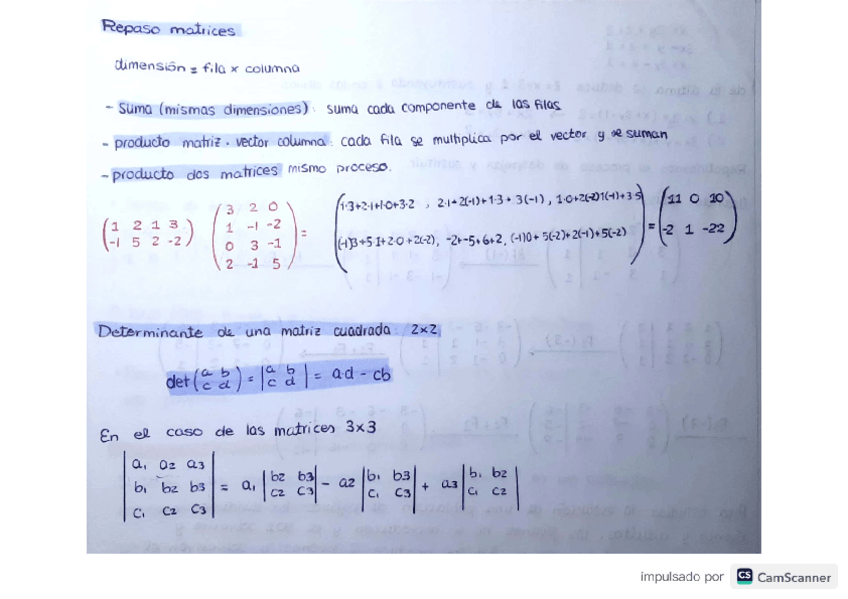 Repaso matrices
dimensión = fila x columna
- Suma (mismas dimensiones): suma cada componente de las filas
- producto matriz · vector columna: cada fila se multiplica por el vector y se suman
- producto dos matrices mismo proceso.
(1 2 1 3 / -1 5 2 -2) (3 2 0 / 1 -1 -2 / 0 3 -1 / 2 -1 5) = (1·3+2·1+1·0+3·2 , 2·1+2(-1)+1·3+3(-1) , 1·0+2(-2)1(-1)+3·5 / (-1)3+5·1+2·0+2(-2), -2+-5+6+2, (-1)0+5(-2)+2(-1)+5(-2)) = (11 0 10 / -2 1 -22)
Determinante de una matriz cuadrada: 2x2
det (a b / c d) = |a b / c d| = a·d - cb
En el caso de las matrices 3x3
|a1 a2 a3 / b1 b2 b3 / c1 c2 c3| = a1 |b2 b3 / c2 c3| - a2 |b1 b3 / c1 c3| + a3 |b1 b2 / c1 c2|
impulsado por CS CamScanner